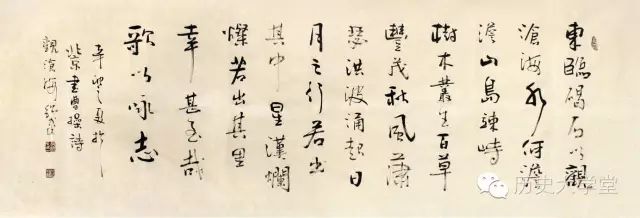 東臨碣石以觀
滄海水何澹
澹山島竦峙
樹木叢生百草
豐茂秋風蕭
瑟洪波涌起日
月之行若出
其中星漢爛
燦若出其里
幸甚至哉
歌以咏志
辛卯之夏於
北京書曹操詩
觀滄海
历史大学堂